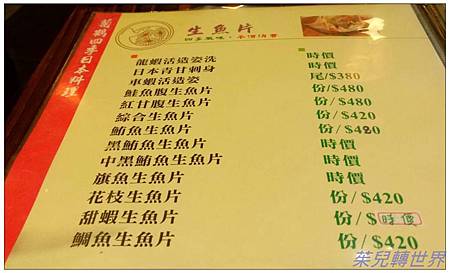 萬鶴四季日本料理
生魚片
四季風味，本僧俏書
龍蝦活造姿洗 時價
日本青甘刺身 時價
車蝦活造姿 尾/$380
鮭魚腹生魚片 份/$480
紅甘腹生魚片 份/$480
綜合生魚片 份/$420
鮪魚生魚片 份/$420
黑鮪魚生魚片 時價
中黑鮪魚生魚片 時價
旗魚生魚片 時價
花枝生魚片 份/$420
甜蝦生魚片 份/$時價
鯛魚生魚片 份/$420
茱兒轉世界